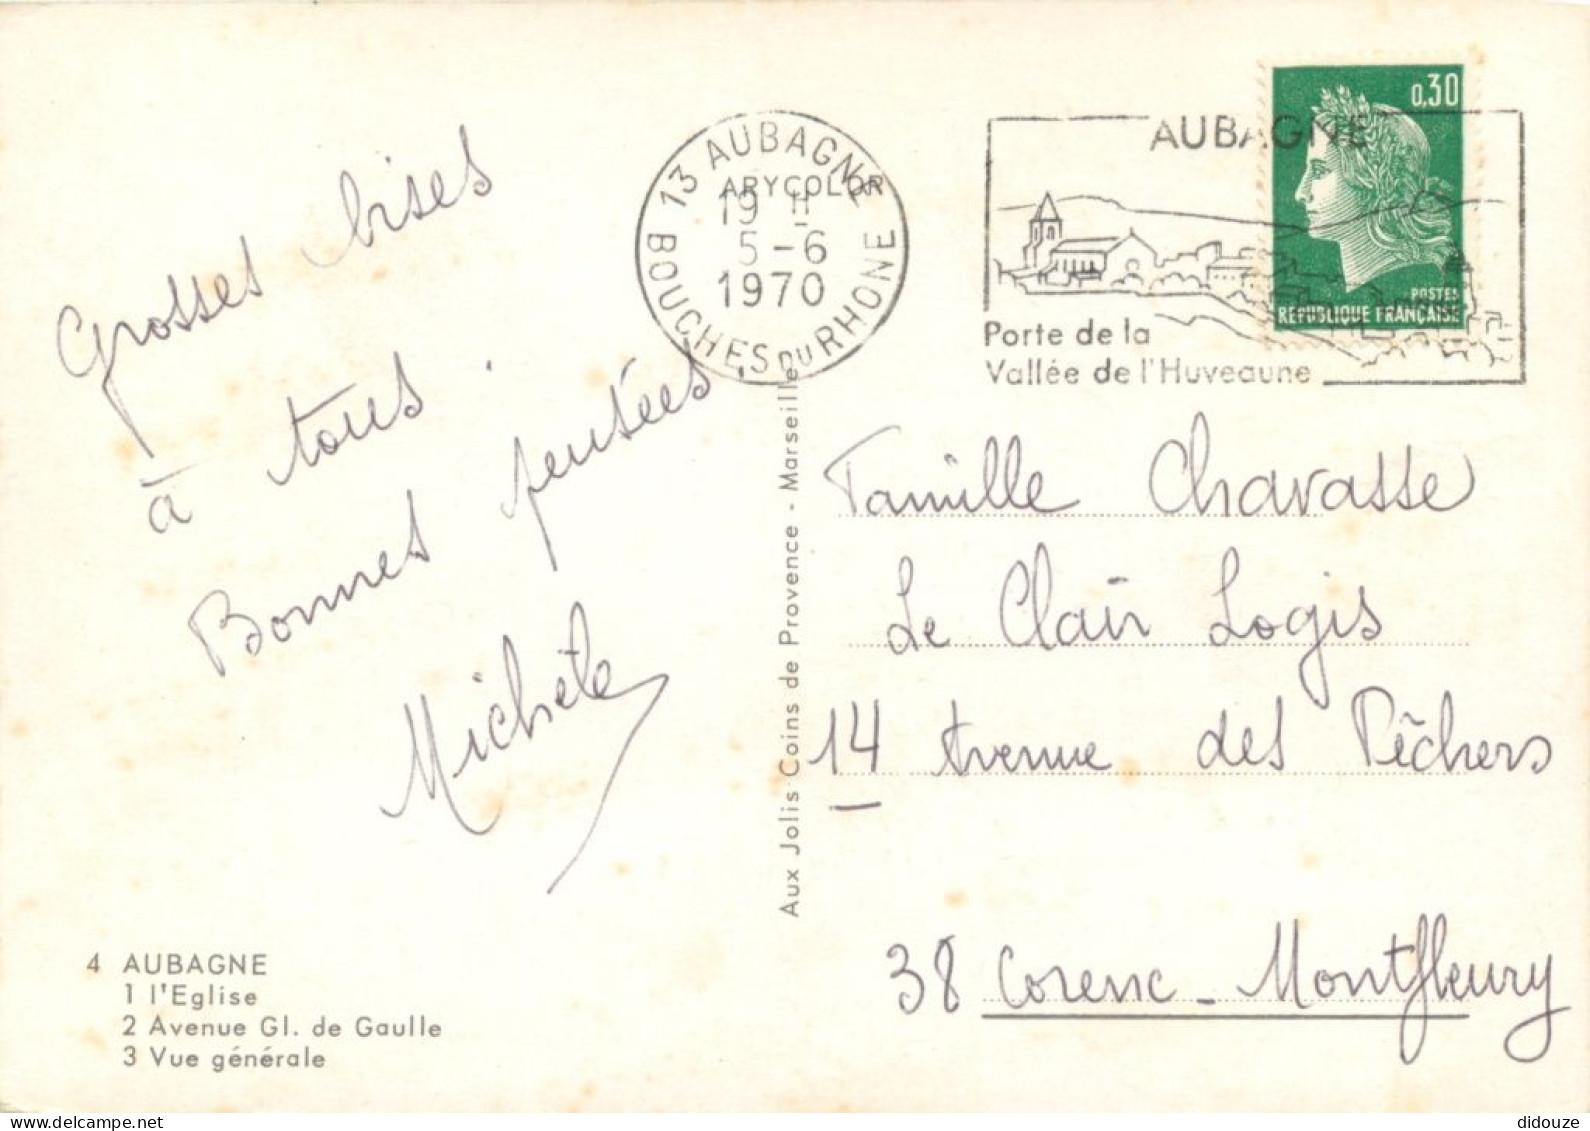 Grosses bises
à tous.
Bonnes pensées.
Michèle
4 AUBAGNE
1 l'Eglise
2 Avenue Gl. de Gaulle
3 Vue générale
Aux Jolis Coins de Provence - Marseille
ARYCOLOR
13 AUBAGNE
19 H
5-6
1970
BOUCHES DU RHONE
AUBAGNE
Porte de la
Vallée de l'Huveaune
0,30
POSTES
REPUBLIQUE FRANÇAISE
Famille Chavasse
Le Clair Logis
14 Avenue des Pêchers
38 Corenc - Montfleury
delcampe.net
didouze